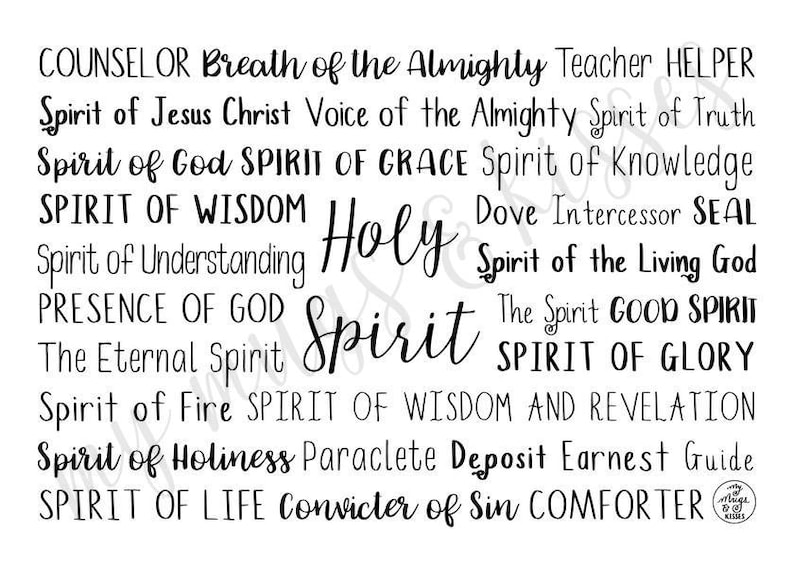 COUNSELOR Breath of the Almighty Teacher HELPER
Spirit of Jesus Christ Voice of the Almighty Spirit of Truth
Spirit of God SPIRIT OF GRACE Spirit of Knowledge
SPIRIT OF WISDOM Holy Dove Intercessor SEAL
Spirit of Understanding Spirit of the Living God
PRESENCE OF GOD Spirit The Spirit GOOD SPIRIT
The Eternal Spirit SPIRIT OF GLORY
Spirit of Fire SPIRIT OF WISDOM AND REVELATION
Spirit of Holiness Paraclete Deposit Earnest Guide
SPIRIT OF LIFE Convicter of Sin COMFORTER
my Mugs & KISSES
my mugs & kisses